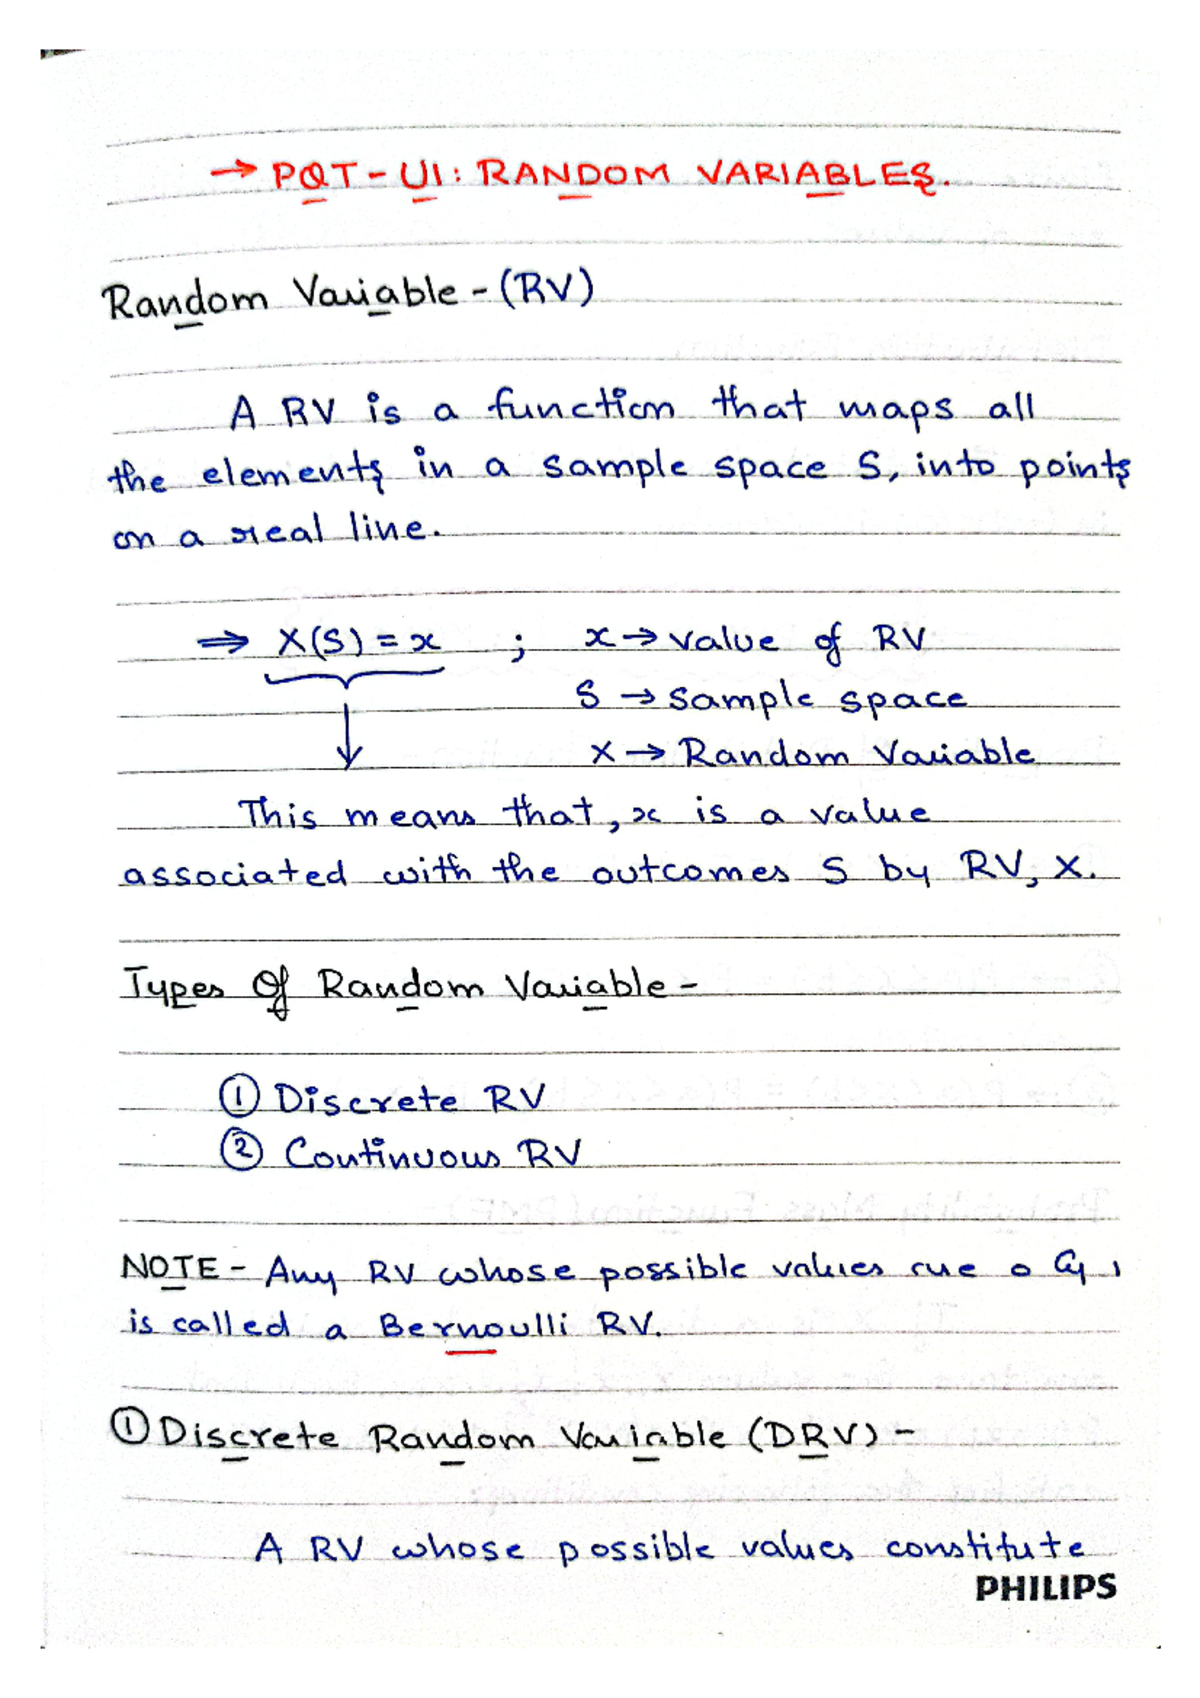 → PQT - U1: RANDOM VARIABLES.
Random Variable - (RV)
A RV is a function that maps all
the elements in a sample space S, into points
on a real line.
⇒ X(S) = x ; x → value of RV
S → sample space
X → Random Variable
This means that, x is a value
associated with the outcomes S by RV, X.
Types Of Random Variable -
① Discrete RV
② Continuous RV
NOTE - Any RV whose possible values are 0 & 1
is called a Bernoulli RV.
① Discrete Random Variable (DRV) -
A RV whose possible values constitute
PHILIPS